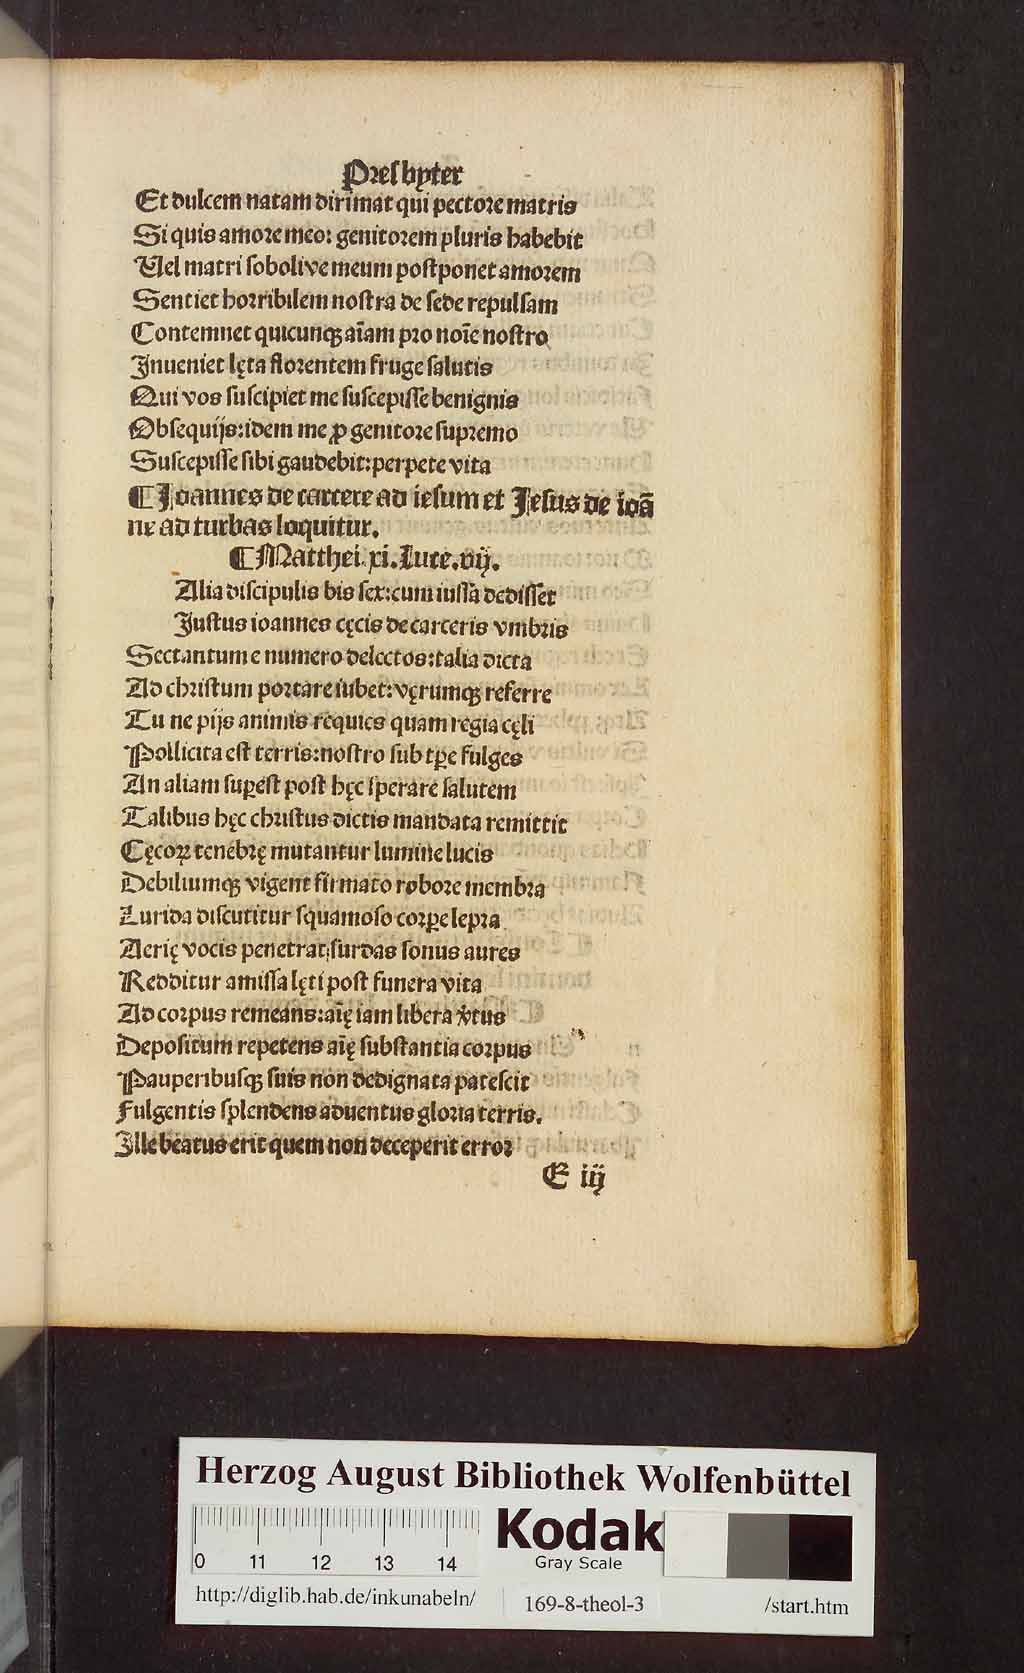 Presbyter
Et dulcem natam dirimat qui pectore matris
Si quis amore meo: genitorem pluris habebit
Uel matri sobolive meum postponet amorem
Sentiet horribilem nostra de sede repulsam
Contemnet quicunqꝫ aīam pro noīe nostro
Inueniet lęta florentem fruge salutis
Qui vos suscipiet me suscepisse benignis
Obsequijs: idem me ꝓ genitore supremo
Suscepisse sibi gaudebit: perpete vita
¶ Joannes de carcere ad iesum et Jesus de ioā
ne ad turbas loquitur.
¶ Matthei. xi. Luce. vij.
Alia discipulis bis sex: cum iussa dedisset
Justus ioannes cęcis de carceris vmbris
Sectantum e numero delectos: talia dicta
Ad christum portare iubet: vęrumqꝫ referre
Tu ne pijs animis requies quam regia cęli
Pollicita est terris: nostro sub tꝑe fulges
An aliam suꝑest post hęc sperare salutem
Talibus hęc christus dictis mandata remittit
Cęcoꝝ tenebrę mutantur lumine lucis
Debiliumqꝫ vigent firmato robore membra
Lurida discutitur squamoso corꝑe lepra
Aerię vocis penetrat: surdas sonus aures
Redditur amissa lęti post funera vita
Ad corpus remeans: aīę iam libera v̓tus
Depositum repetens aīę substantia corpus
Pauperibusqꝫ suis non dedignata patescit
Fulgentis splendens aduentus gloria terris.
Ille beatus erit quem non deceperit error
E iij
Herzog August Bibliothek Wolfenbüttel
0 11 12 13 14
Kodak
Gray Scale
http://diglib.hab.de/inkunabeln/ 169-8-theol-3 /start.htm